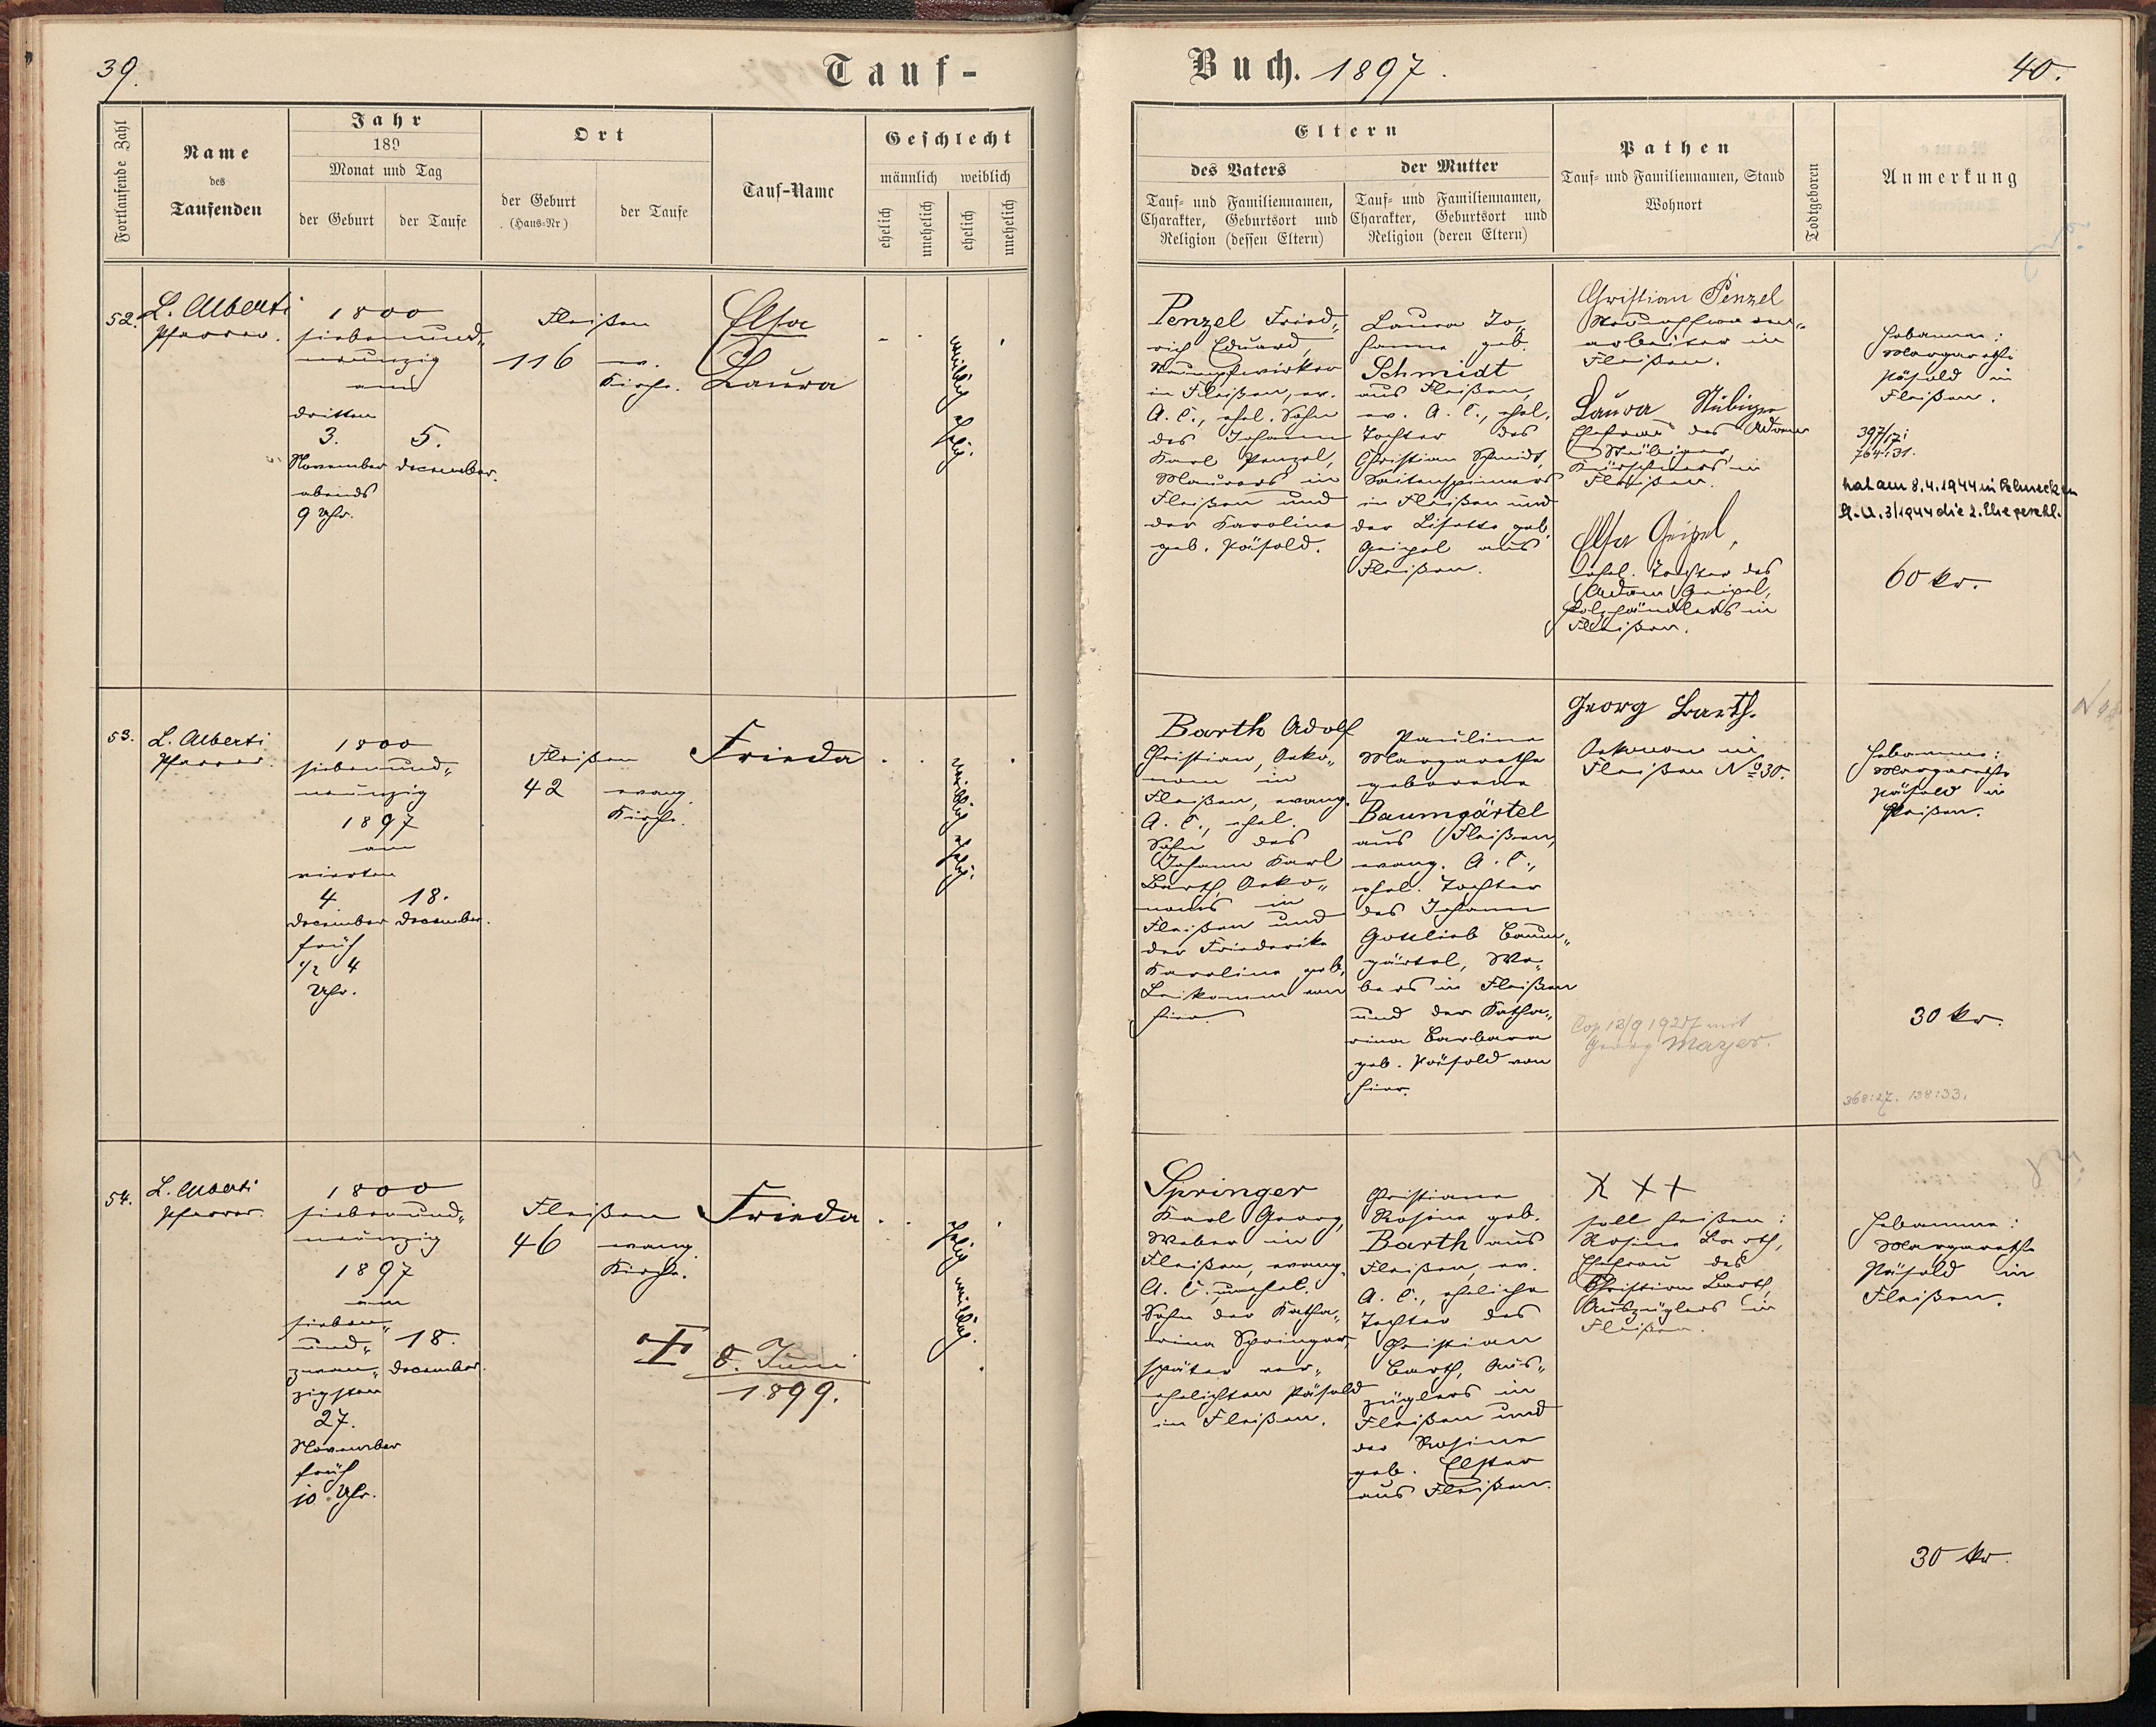 39.
Tauf-
Fortlaufende Zahl
Name
des
Taufenden
Jahr
189
Monat und Tag
der Geburt
der Taufe
Ort
der Geburt
(Haus-Nr)
der Taufe
Tauf-Name
Geschlecht
männlich
weiblich
ehelich
unehelich
ehelich
unehelich
52.
L. Alberti
Pfarrer.
1800
siebenund„
neunzig
am
dritten
3.
November
abends
9 Uhr.
5.
December.
Fleißen
116
ev.
Kirche.
Elsa
Laura
weiblich ehelich.
53.
L. Alberti
Pfarrer.
1800
siebenund„
neunzig
1897
am
vierten
4.
December
früh
1/2 4
Uhr.
18.
December.
Fleißen
42
evang.
Kirche.
Frieda
weiblich ehelich.
54.
L. Alberti
Pfarrer.
1800
siebenund„
neunzig
1897
am
sieben„
und„
zwan„
zigsten
27.
November
früh
10 Uhr.
18.
December.
Fleißen
46
evang.
Kirche.
Frieda
ehelich weiblich.
8. Juni
1899.
Buch. 1897.
40.
Eltern
des Vaters
Tauf- und Familiennamen,
Charakter, Geburtsort und
Religion (dessen Eltern)
der Mutter
Tauf- und Familiennamen,
Charakter, Geburtsort und
Religion (deren Eltern)
Pathen
Tauf- und Familiennamen, Stand
Wohnort
Todtgeboren
Anmerkung
Penzel Fried„
rich Eduard,
Strumpfwirker
in Fleißen, ev.
A. C., ehel. Sohn
des Johann
Karl Penzel,
Maurers in
Fleißen und
der Karoline
geb. Päsold.
Laura Jo„
hanne geb.
Schmidt
aus Fleißen,
ev. A. C., ehel.
Tochter des
Christian Schmidt,
Saitenspinners
in Fleißen und
der Lisette geb.
Geipel aus
Fleißen.
Christian Penzel
arbeiter in
Fleißen.
Laura Stübiger
Ehefrau des Adam
Stübiger,
Kürschners in
Fleißen.
Elsa Geipel,
ehel. Tochter des
Adam Geipel,
Holzhändlers in
Fleißen.
Hebamme:
Margarethe
Päsold in
Fleißen.
hat am 8.4.1944 in
3/1944 die 2. Ehe geschl.
60 kr.
Barth Adolf
Christian, Oeko„
nom in
Fleißen, evang.
A. C., ehel.
Sohn des
Johann Karl
Barth, Oeko„
noms in
Fleißen und
der Friederike
Karoline geb.
von
hier.
Pauline
Margarethe
geborene
Baumgärtel
aus Fleißen,
evang. A. C.,
ehel. Tochter
des Johann
Gottlieb Baum„
gärtel, We„
bers in Fleißen
und der Katha„
rina Barbara
geb. Päsold von
hier.
Georg Barth.
Oekonom in
Fleißen No 30.
Cop. 18/9 1927 mit
Georg Mayer.
Hebamme:
Margarethe
Päsold in
Fleißen.
30 kr.
368:27. 138:33.
Springer
Karl Georg,
Weber in
Fleißen, evang.
A. C. unehel.
Sohn der Katha„
rina Springer,
später ver„
ehelichten Päsold
in Fleißen.
Christiane
Rosine geb.
Barth aus
Fleißen, ev.
A. C., eheliche
Tochter des
Christian
Barth, Aus„
züglers in
Fleißen und
der Rosine
geb. Elster
aus Fleißen.
X X X
soll heißen:
Rosine Barth,
Ehefrau des
Christian Barth,
Auszüglers in
Fleißen.
Hebamme:
Margarethe
Päsold in
Fleißen.
30 kr.